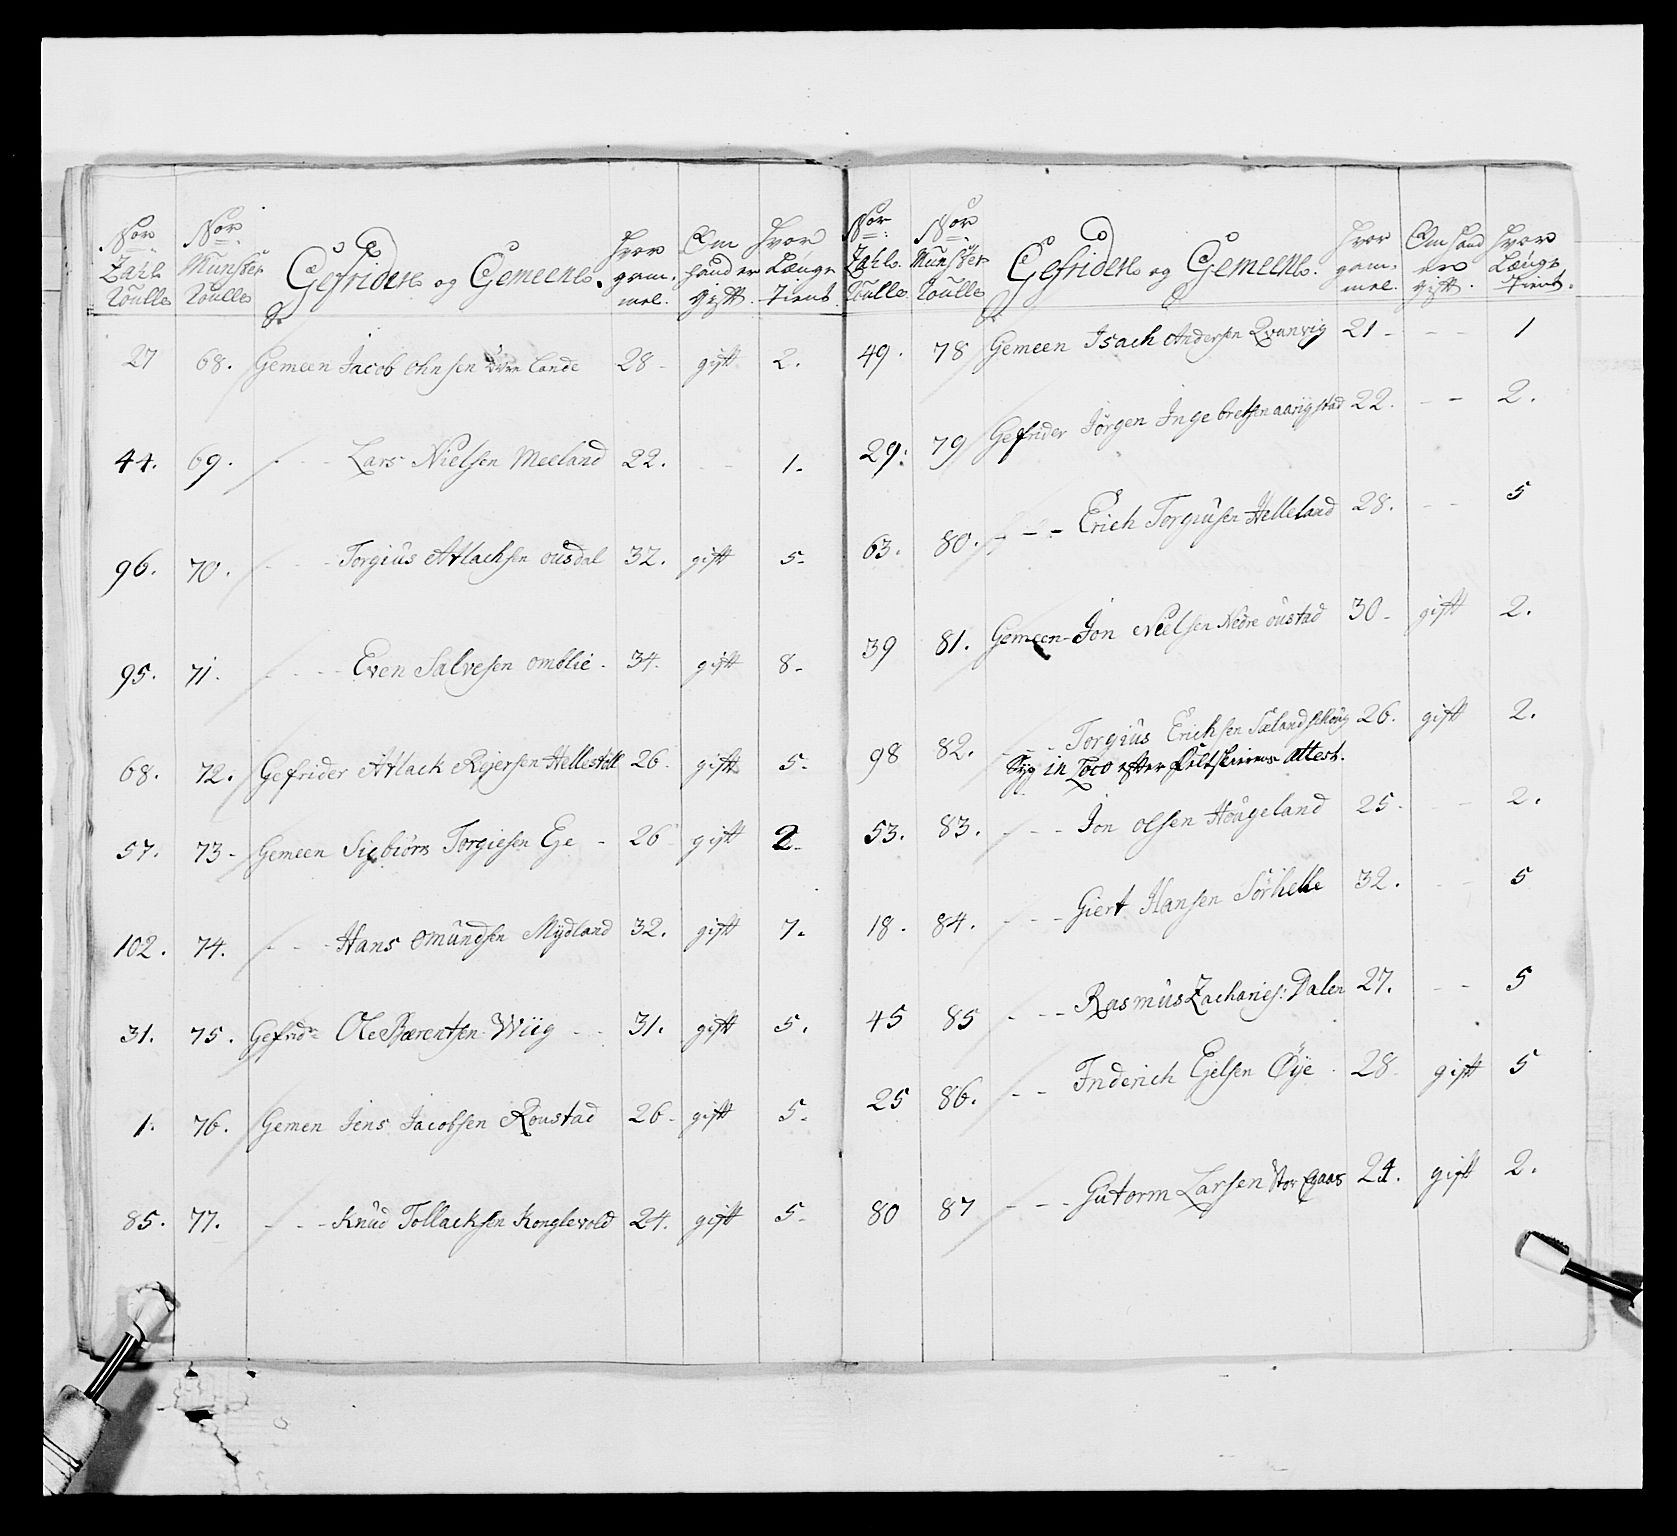 Nor Zahl Roulle | Nor Munster Roulle | Gefridere og Gemeene. | Hvor gam- mel. | Om hand er gift. | Hvor Længe Tient.
27 68. Gemeen Jacob Ohnsen Lande 28 - gift 2.
44. 69. - - - Lars Nielsen Meeland 22. - - 1.
96. 70. - - - Torgius Atlachsen ousdal 32. gift 5-
95. 71. - - - Even Salvesen omblie - 34. gift 8-
68. 72. Gefrider Atlack Rejersen Hellestøll 26. gift 5-
57. 73- Gemeen Sigbiörn Torgiesen Eje - 26 gift 2-
102. 74. - - - Hans omündsen Mydland 32. gift 7.
31. 75. Gefridr Ole Bærentsen Wiig - - 31. gift 5.
1. 76. Gemen Jens Jacobsen Roustad 26- gift 5-
85. 77. - - - Knud Tollacksen Konglevold 24. gift 5-
Nor Zahl Roulle | Nor Munster Roulle | Gefridere og Gemeene. | Hvor gam- mel. | Om Hand er gift. | Hvor Længe Tient.
49. 78 Gemeen Isach Andersen Qvanvig 21- - - 1
29: 79 Gefrider Jörgen Ingebretsen aarigstad 22. - - 2.
63. 80. - - - Erich Torgiusen Helleland 28. - - 5
39 81. Gemeen- Jon Nielsen Nedre oustad 30- gift 2.
98 82. - - - Torgius Erichsen 26. gift 2.
Syg in Loco efter feltskierens Attest.
53. 83. - - - Jon olsen Hougeland 25- - - 2.
18. 84. - - - Giert Hansen Sörhelle 32. - - 5
45 85 - - - Rasmus Zacharies: Dalen 27. - - 5
25 86. - - - Friderich Ejelsen Øye - 28 gift 5
80 87 - - - Gutorm Larsen 24. gift 2.